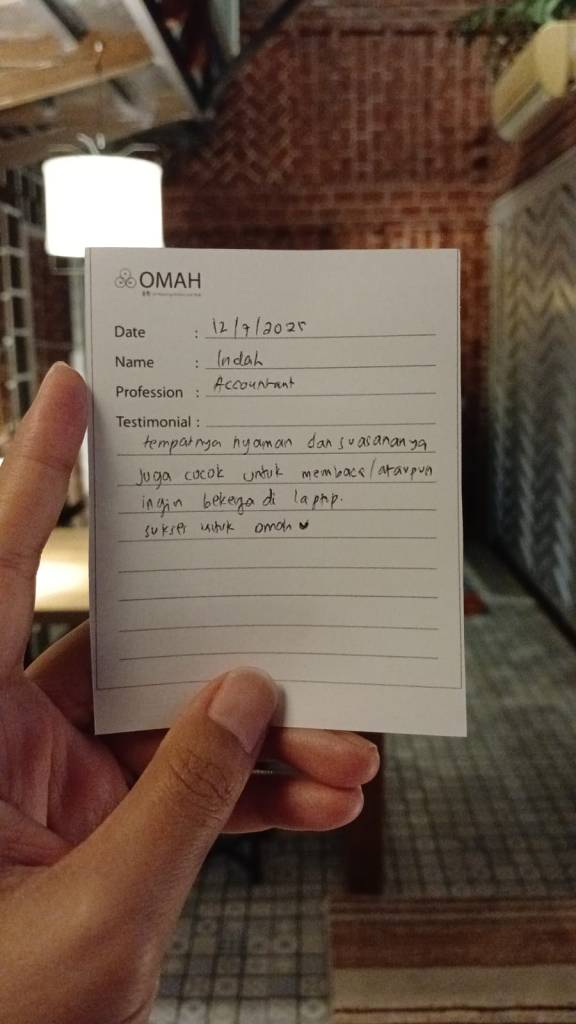 OMAH
Date : 12/7/2025
Name : Indah
Profession : Accountant
Testimonial :
tempatnya nyaman dan suasananya
juga cocok untuk membaca/ataupun
ingin bekerja di laptop.
sukses untuk omah